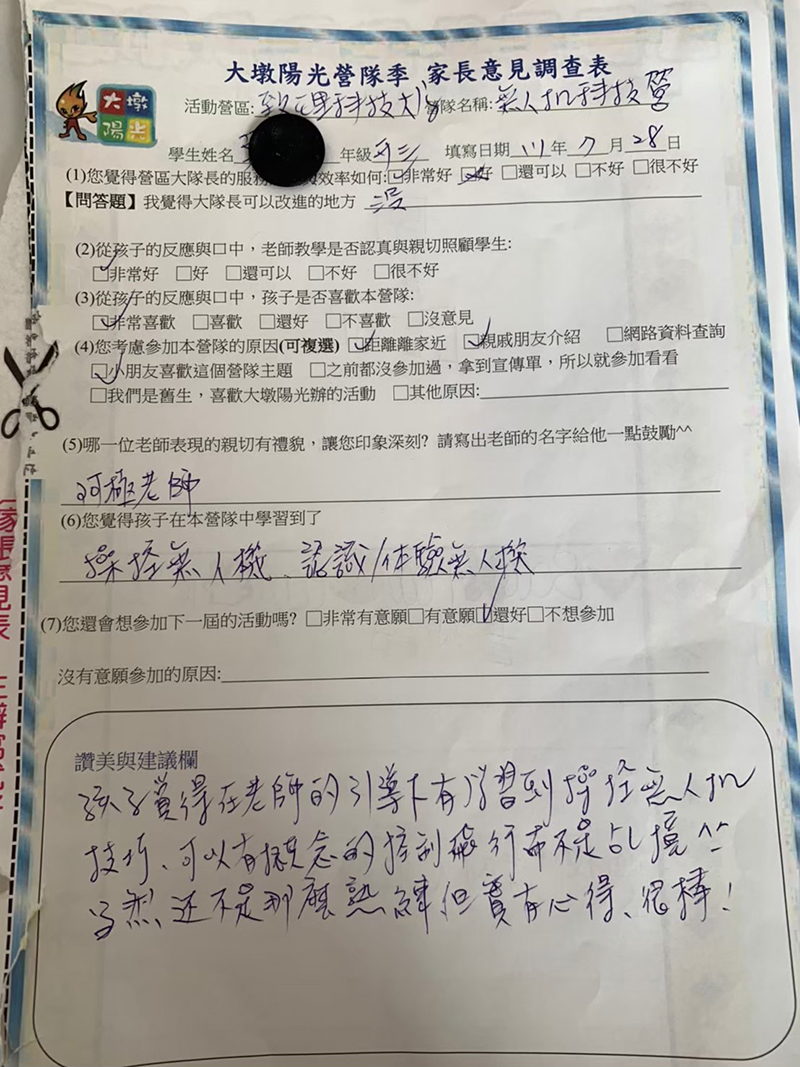 大墩陽光營隊季 家長意見調查表
大墩
陽光
活動營區: 科技大 隊名稱: 無人机科技營
學生姓名 年級 升三 填寫日期 111 年 7 月 28 日
(1)您覺得營區大隊長的服務 效率如何: □非常好 □好 □還可以 □不好 □很不好
【問答題】我覺得大隊長可以改進的地方 沒
(2)從孩子的反應與口中，老師教學是否認真與親切照顧學生:
□非常好 □好 □還可以 □不好 □很不好
(3)從孩子的反應與口中，孩子是否喜歡本營隊:
□非常喜歡 □喜歡 □還好 □不喜歡 □沒意見
(4)您考慮參加本營隊的原因(可複選) □距離離家近 □親戚朋友介紹 □網路資料查詢
□小朋友喜歡這個營隊主題 □之前都沒參加過，拿到宣傳單，所以就參加看看
□我們是舊生，喜歡大墩陽光辦的活動 □其他原因:
(5)哪一位老師表現的親切有禮貌，讓您印象深刻? 請寫出老師的名字給他一點鼓勵^^
阿極老師
(6)您覺得孩子在本營隊中學習到了
操控無人機、認識/体驗無人機
(7)您還會想參加下一屆的活動嗎? □非常有意願□有意願□還好□不想參加
沒有意願參加的原因:
讚美與建議欄
孩子覺得在老師的引導下有學習到操控無人机
技巧、可以有概念的控制飛行而不是乱撞^^
当然还不是那麼熟練但實有心得、很棒!